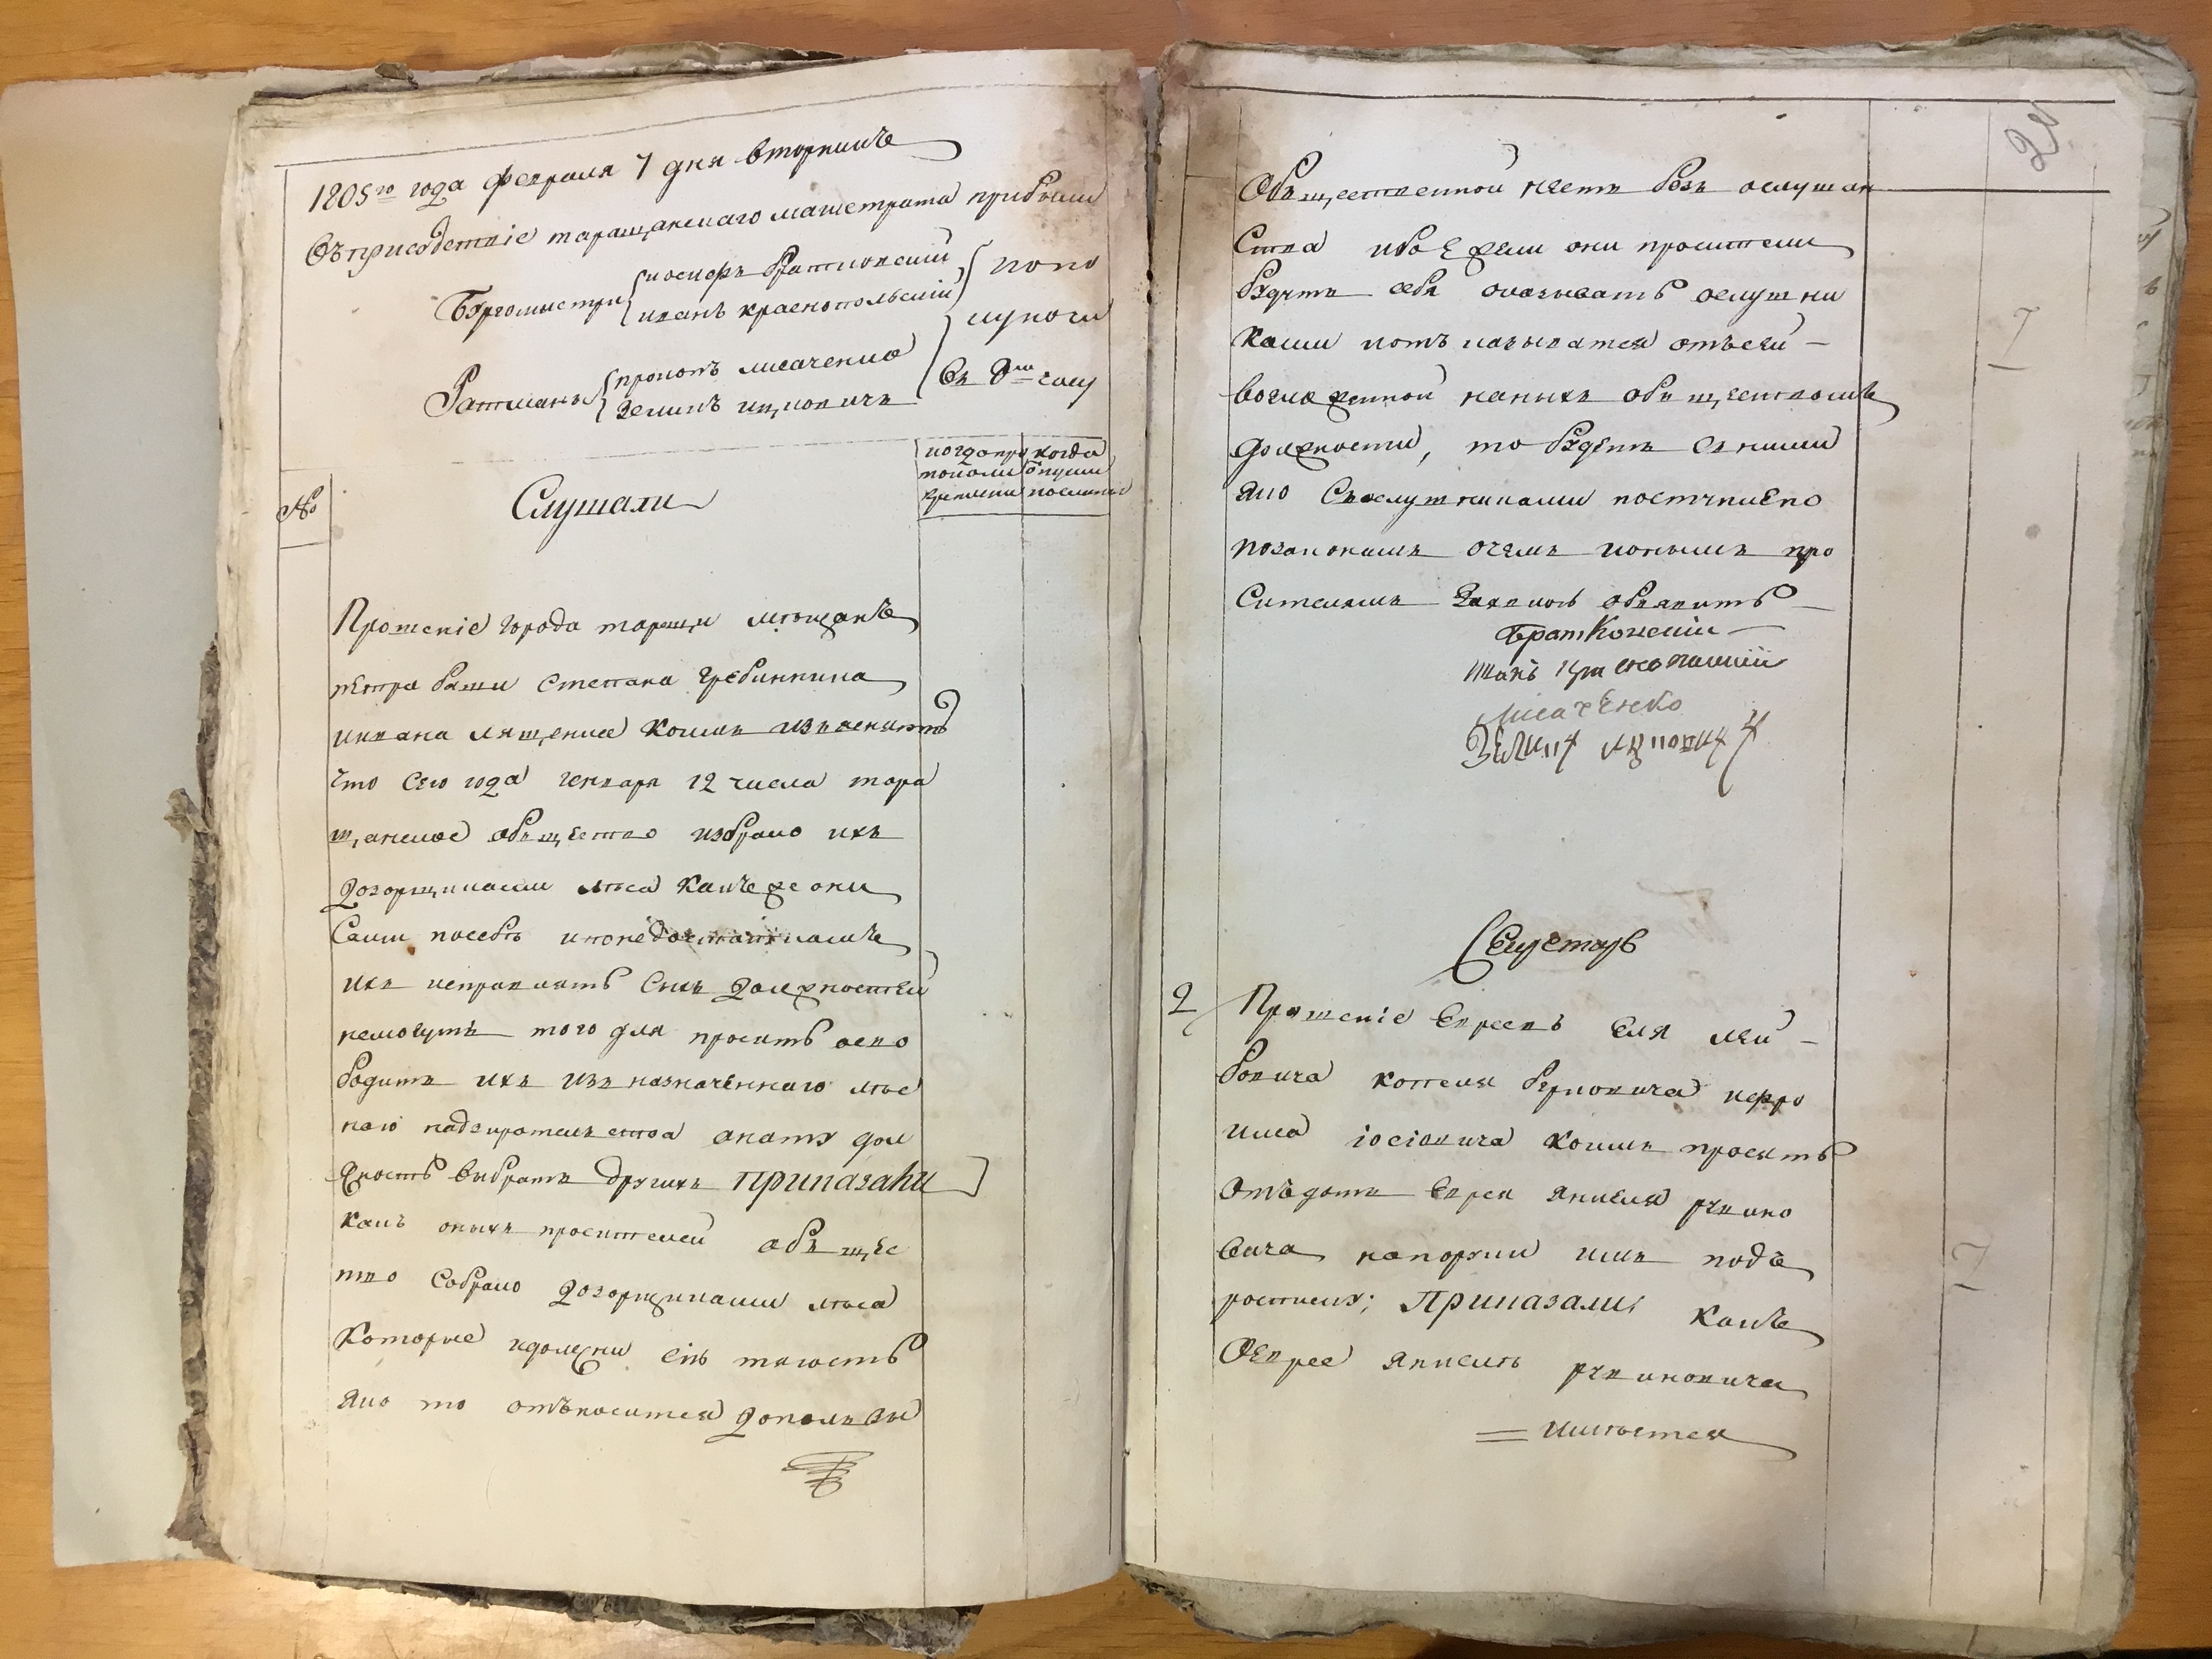 1805го года февраля 7 дня вторникъ
Въ присудствіе таращанскаго магистрата прибыли
Бургомистри иосифъ братковский
иванъ краснопольский
пополуночи
Ратманы прокопъ лисаченко
зеликъ ицковичъ
въ 8м часу
№
Слушали
когда
когда
Прошеніе города таращи мещанъ
петра баши степана гребинника
ивана лященка коимъ изъясняютъ
что сего года генваря 12 числа тара
щанское общество избрало ихъ
дозорщиками леса какъ же они
сами по себѣ и по недостаткамъ
ихъ исправлять сихъ должностей
немогутъ того для просятъ осво
бодить ихъ изъ назначеннаго лѣс
наго надзирательства а на ту дол
жность выбрать другихъ Приказали
какъ оныхъ просителей обще
тво собрало дозорщиками лѣса
которые и должни сію тягость
яко то относится до пользы
20
Общественной несть безъ ослушан
ства ибо ежели они просители
будутъ себя оказывать ослушни
ками
возложенной на нихъ обществомъ
должности, то будетъ съ ними
яко съ ослушниками поступлено
по законамъ о чемъ и онымъ про
сителямъ объявить
Братковский
Иванъ краснопольский
Лисаченко
Зеликъ ицковичъ
Секретарь
2 Прошеніе евреевъ еля лей
бовича копеля берковича и фро
има іосіовича коимъ просятъ
отъдать еврея янкеля рувино
вича на поруки имъ подъ
росписку; Приказали какъ
еврей янкель рувиновичъ
имѣется